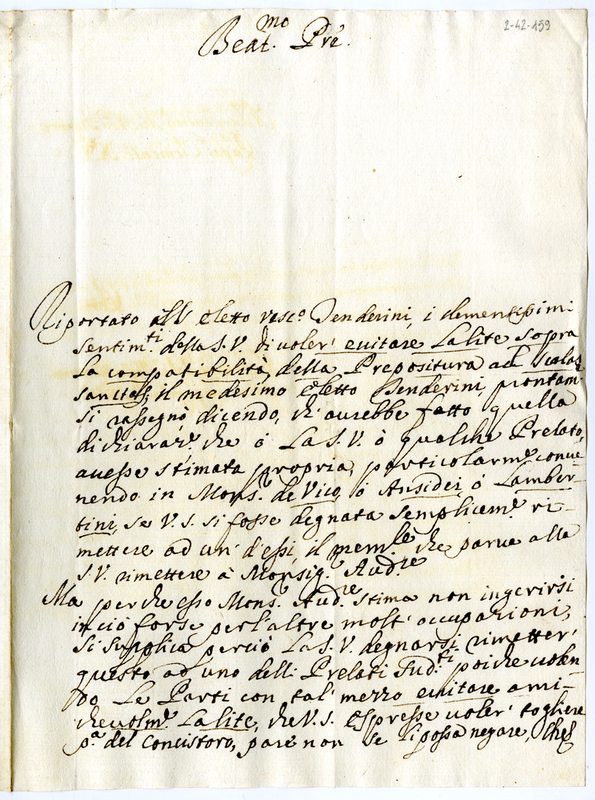 2-42-159
Beat.mo Pre.
Riportato all' eletto Vesc.o Denderini, i clementissimi
sentim.ti della S.V. di voler' evitare La lite sopra
La compatibilità della Prepositura ad Scalas
sanctas; il medesimo eletto Denderini, prontam.
si rassegnò dicendo, ch'aurebbe fatto quella
dichiaraz.e che ò La S.V. ò qualche Prelato,
auesse stimata propria, particolarm.e conue-
nendo in Mons.r de Vico, ò Ansidei, ò Lamber-
tini, se V.S. si fosse degnata semplicem.e ri-
mettere ad un' d'essi, il che parue alla
S.V. rimettere à Monsig.r Aud.re
Ma perche esso Mons.r Aud.re stima non ingerirsi
in ciò forse per l'altre molt' occupazioni,
Si supplica perciò La S.V. degnarsi rimetter'
questo ad uno delli Prelati sud.ti poiche uolen-
do Le Parti con tal' mezzo euitare ami-
cheuolm.e La lite, che V.S. espresse uoler' togliere
p.a del Concistoro, pare non se li possa negare, che